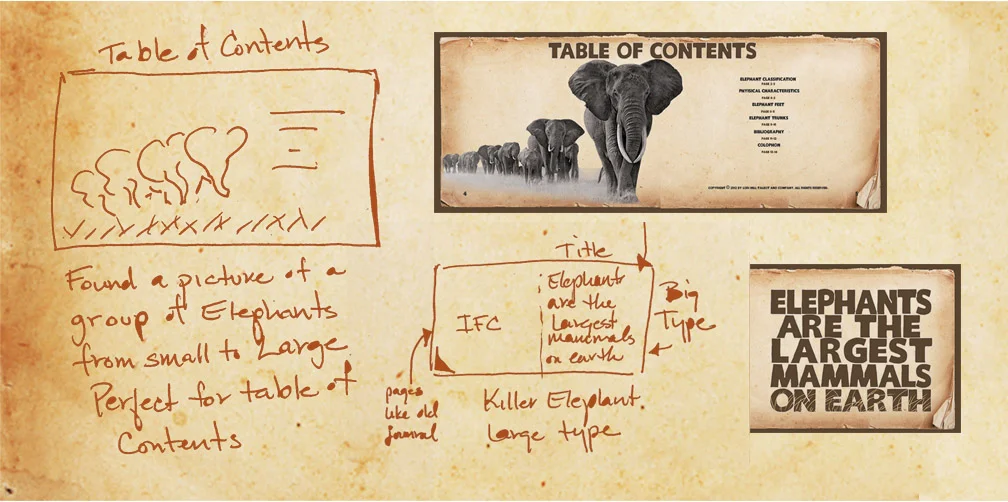 Table of Contents
Found a picture of a
group of Elephants
from small to Large
Perfect for table of
Contents
TABLE OF CONTENTS
ELEPHANT CLASSIFICATION
PHYSICAL CHARACTERISTICS
ELEPHANT FEET
ELEPHANT TRUNKS
BIBLIOGRAPHY
COLOPHON
Title
IFC
Elephants
are the
Largest
mammals
on earth
Big
Type
pages
like old
Journal
Killer Elephant
large type
ELEPHANTS
ARE THE
LARGEST
MAMMALS
ON EARTH